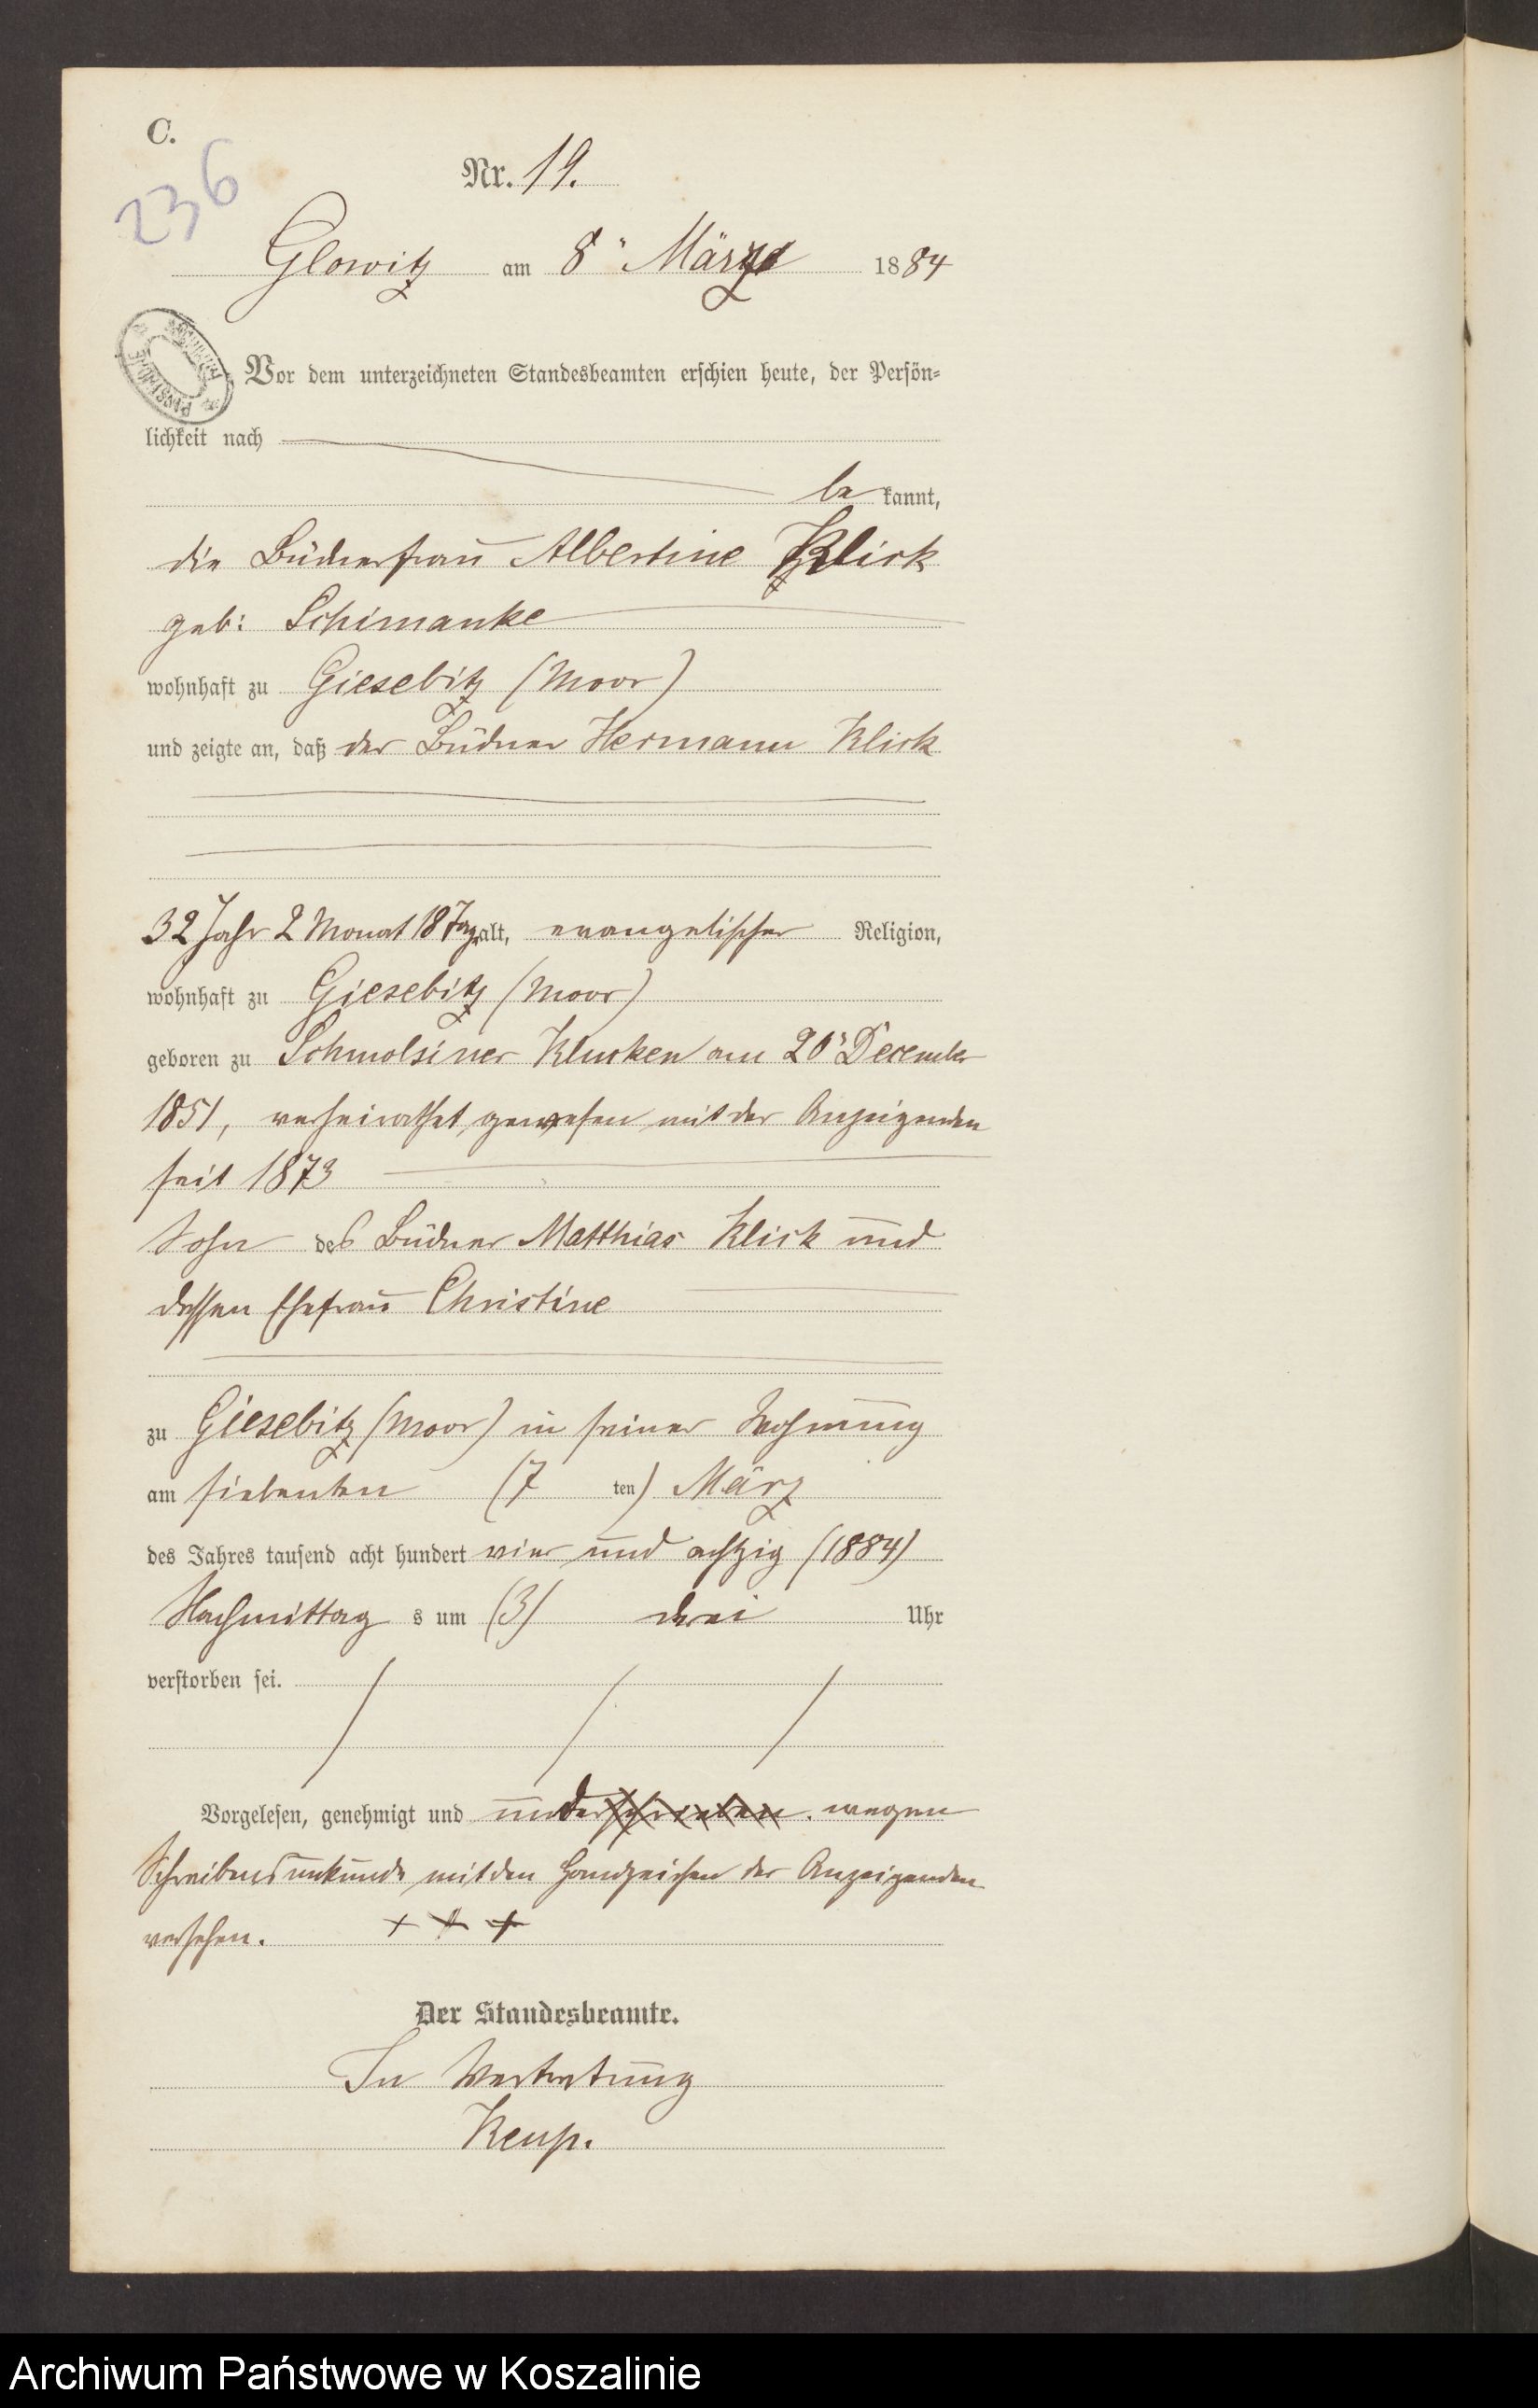 C.
236
Nr. 19.
Glowitz am 8' März 1884
Vor dem unterzeichneten Standesbeamten erschien heute, der Persön-
lichkeit nach
be kannt,
die Büdnerfrau Albertine Klick
geb: Schimanke
wohnhaft zu Giesebitz (Moor)
und zeigte an, daß der Büdner Hermann Klick
32 Jahr 2 Monat 18 Tag alt, evangelischer Religion,
wohnhaft zu Giesebitz (Moor)
geboren zu Schmolsiner Klucken am 20' December
1851, verheirathet gewesen mit der Anzeigenden
seit 1873
Sohn des Büdner Matthias Klick und
dessen Ehefrau Christine
zu Giesebitz (Moor) in seiner Wohnung
am siebenten (7 ten) März
des Jahres tausend acht hundert vier und achtzig (1884)
Nachmittag s um (3) drei Uhr
verstorben sei.
Vorgelesen, genehmigt und unterschrieben. wegen
Schreibensunkunde mit den Handzeichen der Anzeigenden
versehen. + + +
Der Standesbeamte.
In Vertretung
Keup.
Archiwum Państwowe w Koszalinie